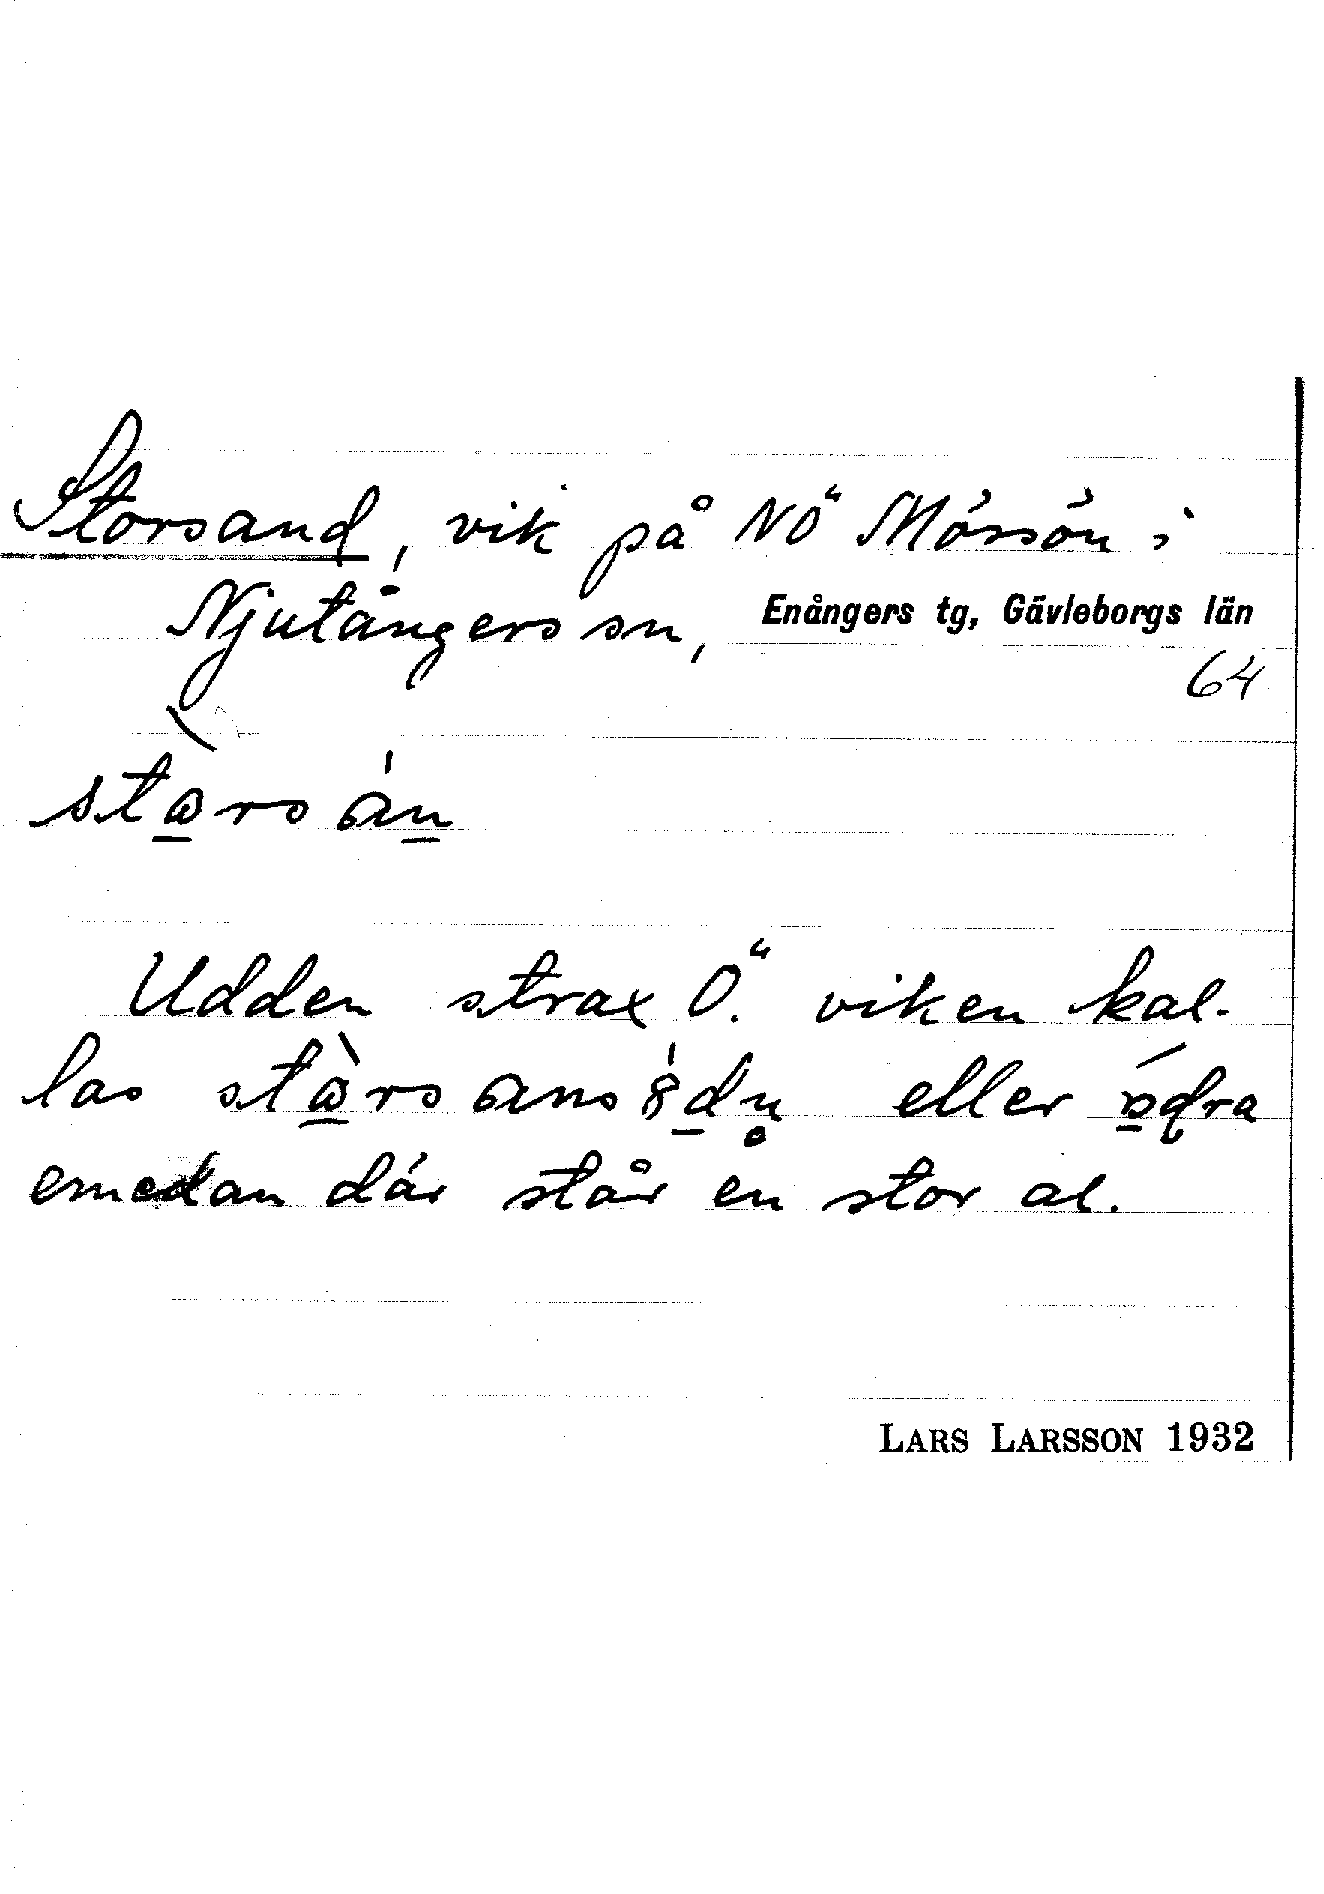 Storsand, vik på NÖ Mössön i
Njutångers sn, Enångers tg, Gävleborgs län
64
Udden strax Ö. viken kal-
las eller
emedan där står en stor al.
LARS LARSSON 1932